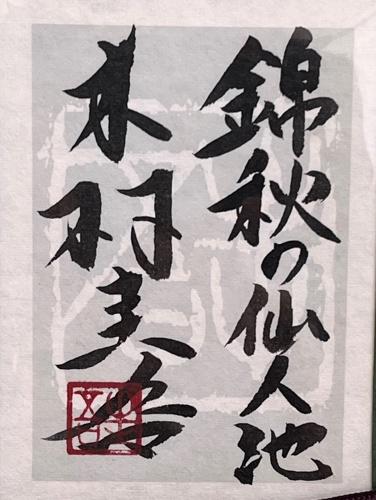 錦秋の仙人池
木村美岳